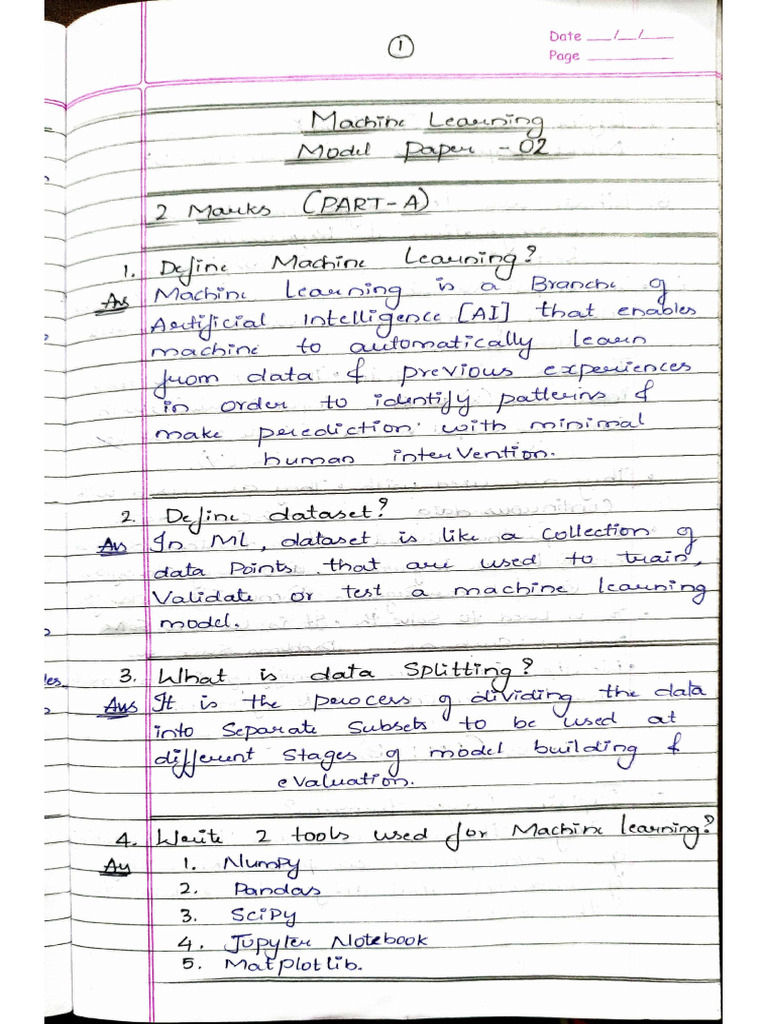 1
Date __/__/__
Page ________
Machine Learning
Model Paper - 02
2 Marks (PART-A)
1. Define Machine Learning?
Ans Machine Learning is a Branche of
Artificial Intelligence [AI] that enables
machine to automatically learn
from data & previous experiences
in order to identify patterns &
make prediction with minimal
human intervention.
2. Define dataset?
Ans In ML, dataset is like a collection of
data Points that are used to train,
Validate or test a machine learning
model.
3. What is data Splitting?
Ans It is the process of dividing the data
into Separate Subsets to be used at
different Stages of model building &
evaluation.
4. Write 2 tools used for Machine learning?
Ans 1. Numpy
2. Pandas
3. SciPy
4. Jupyter Notebook
5. Matplotlib.